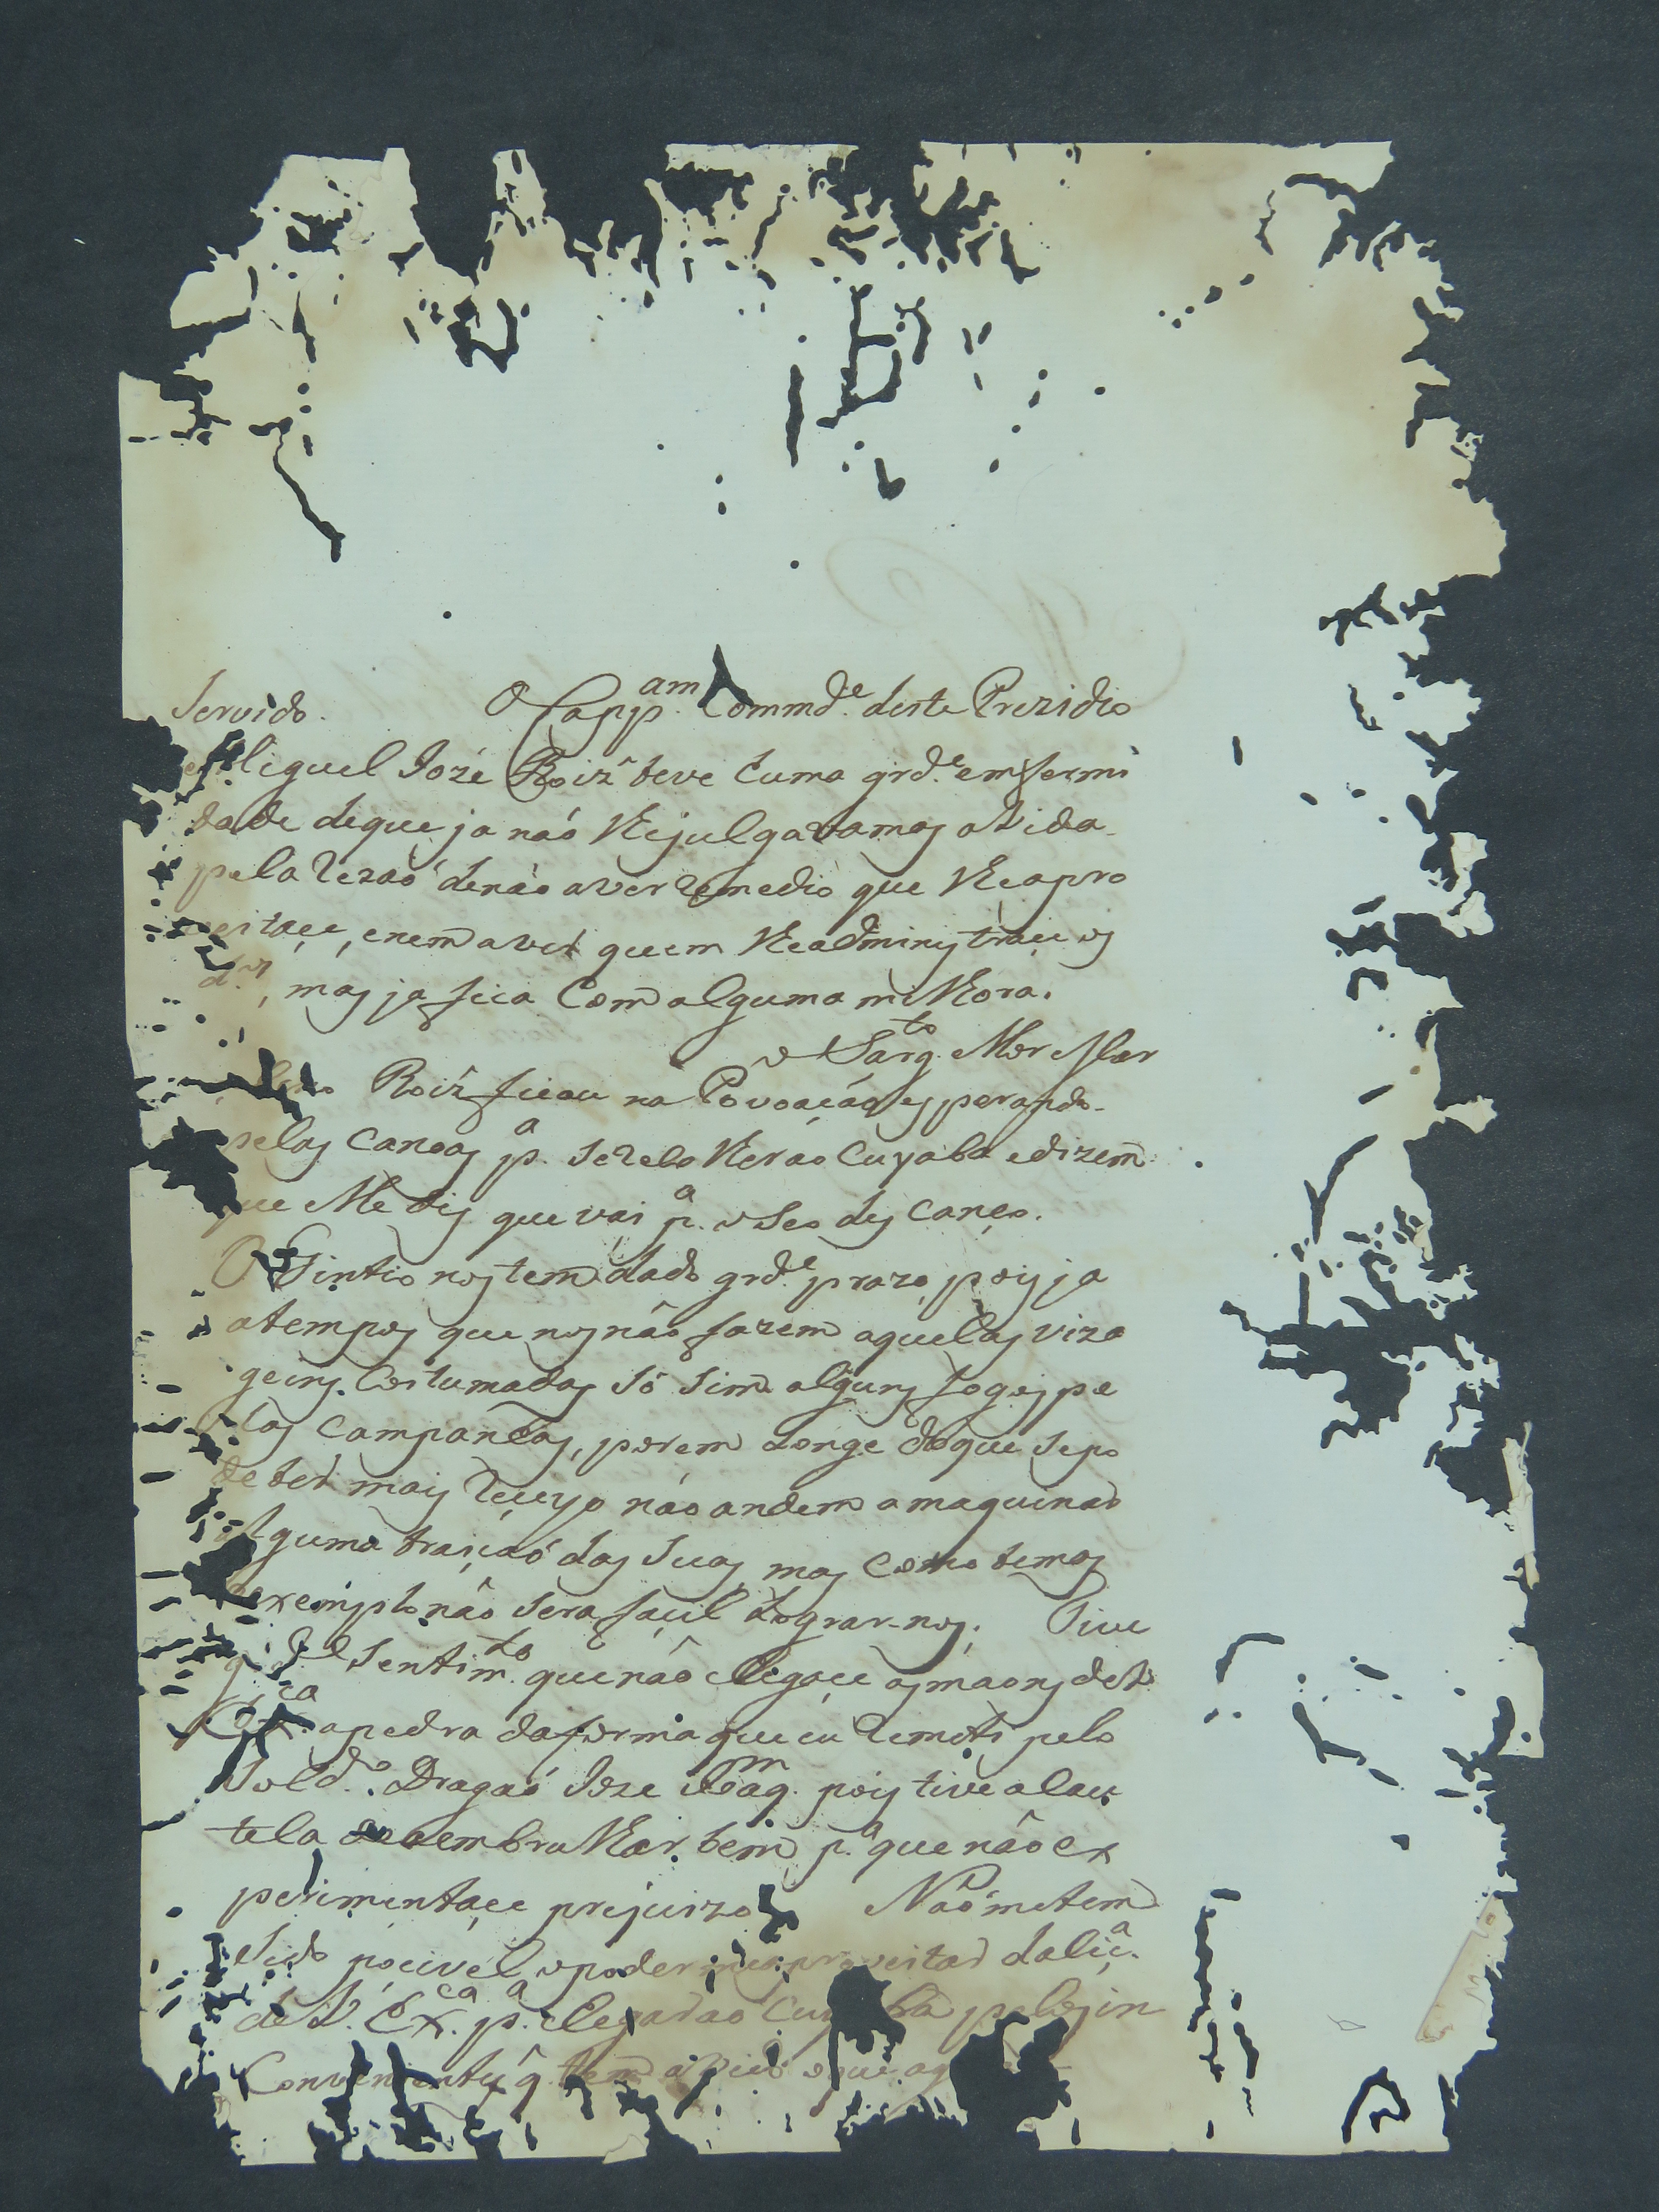 Servido. O Capp.am Commd.e deste Prezidio
Miguel Joze Roiz teve huma grd.e emfermi
dade deque ja não lhejulgavamos avida
pela rezaõ denão aver remedio que lheapro
veitaçe, enem aver quem lheadministraçe os
d.os, mas ja fica Com alguma milhora.
o Sarg.to Mor Mar
Roiz ficou na Povoação esperando
pelas Canoas p.a Serecolher ao Cuyaba edizem
que Me dis que vai p.a o Seo des Canço.
O Gintio nos tem dado grd.e prazo, pois ja
atempos que nos não fazem aquelas viza
geins Costumadas Só Sim alguns fogos pe
las Campanhas, porem Longe doque Sepo
de ter mais reçeyo não andem amaquinar
alguma traiçaõ das Suas, mas Como temos
exemplo não Sera façil Lograr-nos. Tive
g.de Sentim.to quenão chegaçe asmaons deV.
Ex.ca apedra daforma que eu remeti pelo
Sold.o Dragaõ Joze pois tive a Cau
tela de aembrulhar bem p.a que não ex
perimentaçe prejuizo Naõmetem
Sido pocivel opoder meaproveitar daliç.a
deV. Ex.ca p.a chegar ao Cuyaba pelos in
Convenientes q. tem avido